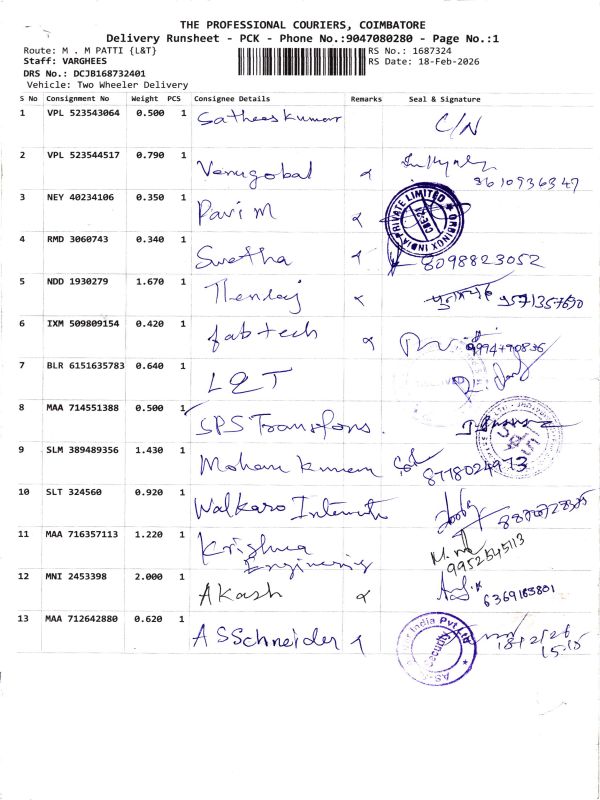 THE PROFESSIONAL COURIERS, COIMBATORE
Delivery Runsheet - PCK - Phone No.:9047080280 - Page No.:1
Route: M . M PATTI {L&T} RS No.: 1687324
Staff: VARGHEES RS Date: 18-Feb-2026
DRS No.: DCJB168732401
Vehicle: Two Wheeler Delivery
S No Consignment No Weight PCS Consignee Details Remarks Seal & Signature
1 VPL 523543064 0.500 1 Satheeskumar C/N
2 VPL 523544517 0.790 1 Venugobal
3610936347
3 NEY 40234106 0.350 1 Pavi M
ORBINOX INDIA PRIVATE LIMITED
4 RMD 3060743 0.340 1 Swetha 8098823052
5 NDD 1930279 1.670 1 9571357690
6 IXM 509809154 0.420 1 fabtech 9994790836
7 BLR 6151635783 0.640 1 L&T
8 MAA 714551388 0.500 1 SPS
9 SLM 389489356 1.430 1 Mohan kumar 8778024973
10 SLT 324560 0.920 1 Walkaro
11 MAA 716357113 1.220 1 Krishna
Engineering 9952545113
12 MNI 2453398 2.000 1 Akash 6369163801
13 MAA 712642880 0.620 1 ASSchneider 18/2/26
15.15
India Pvt Ltd
Security